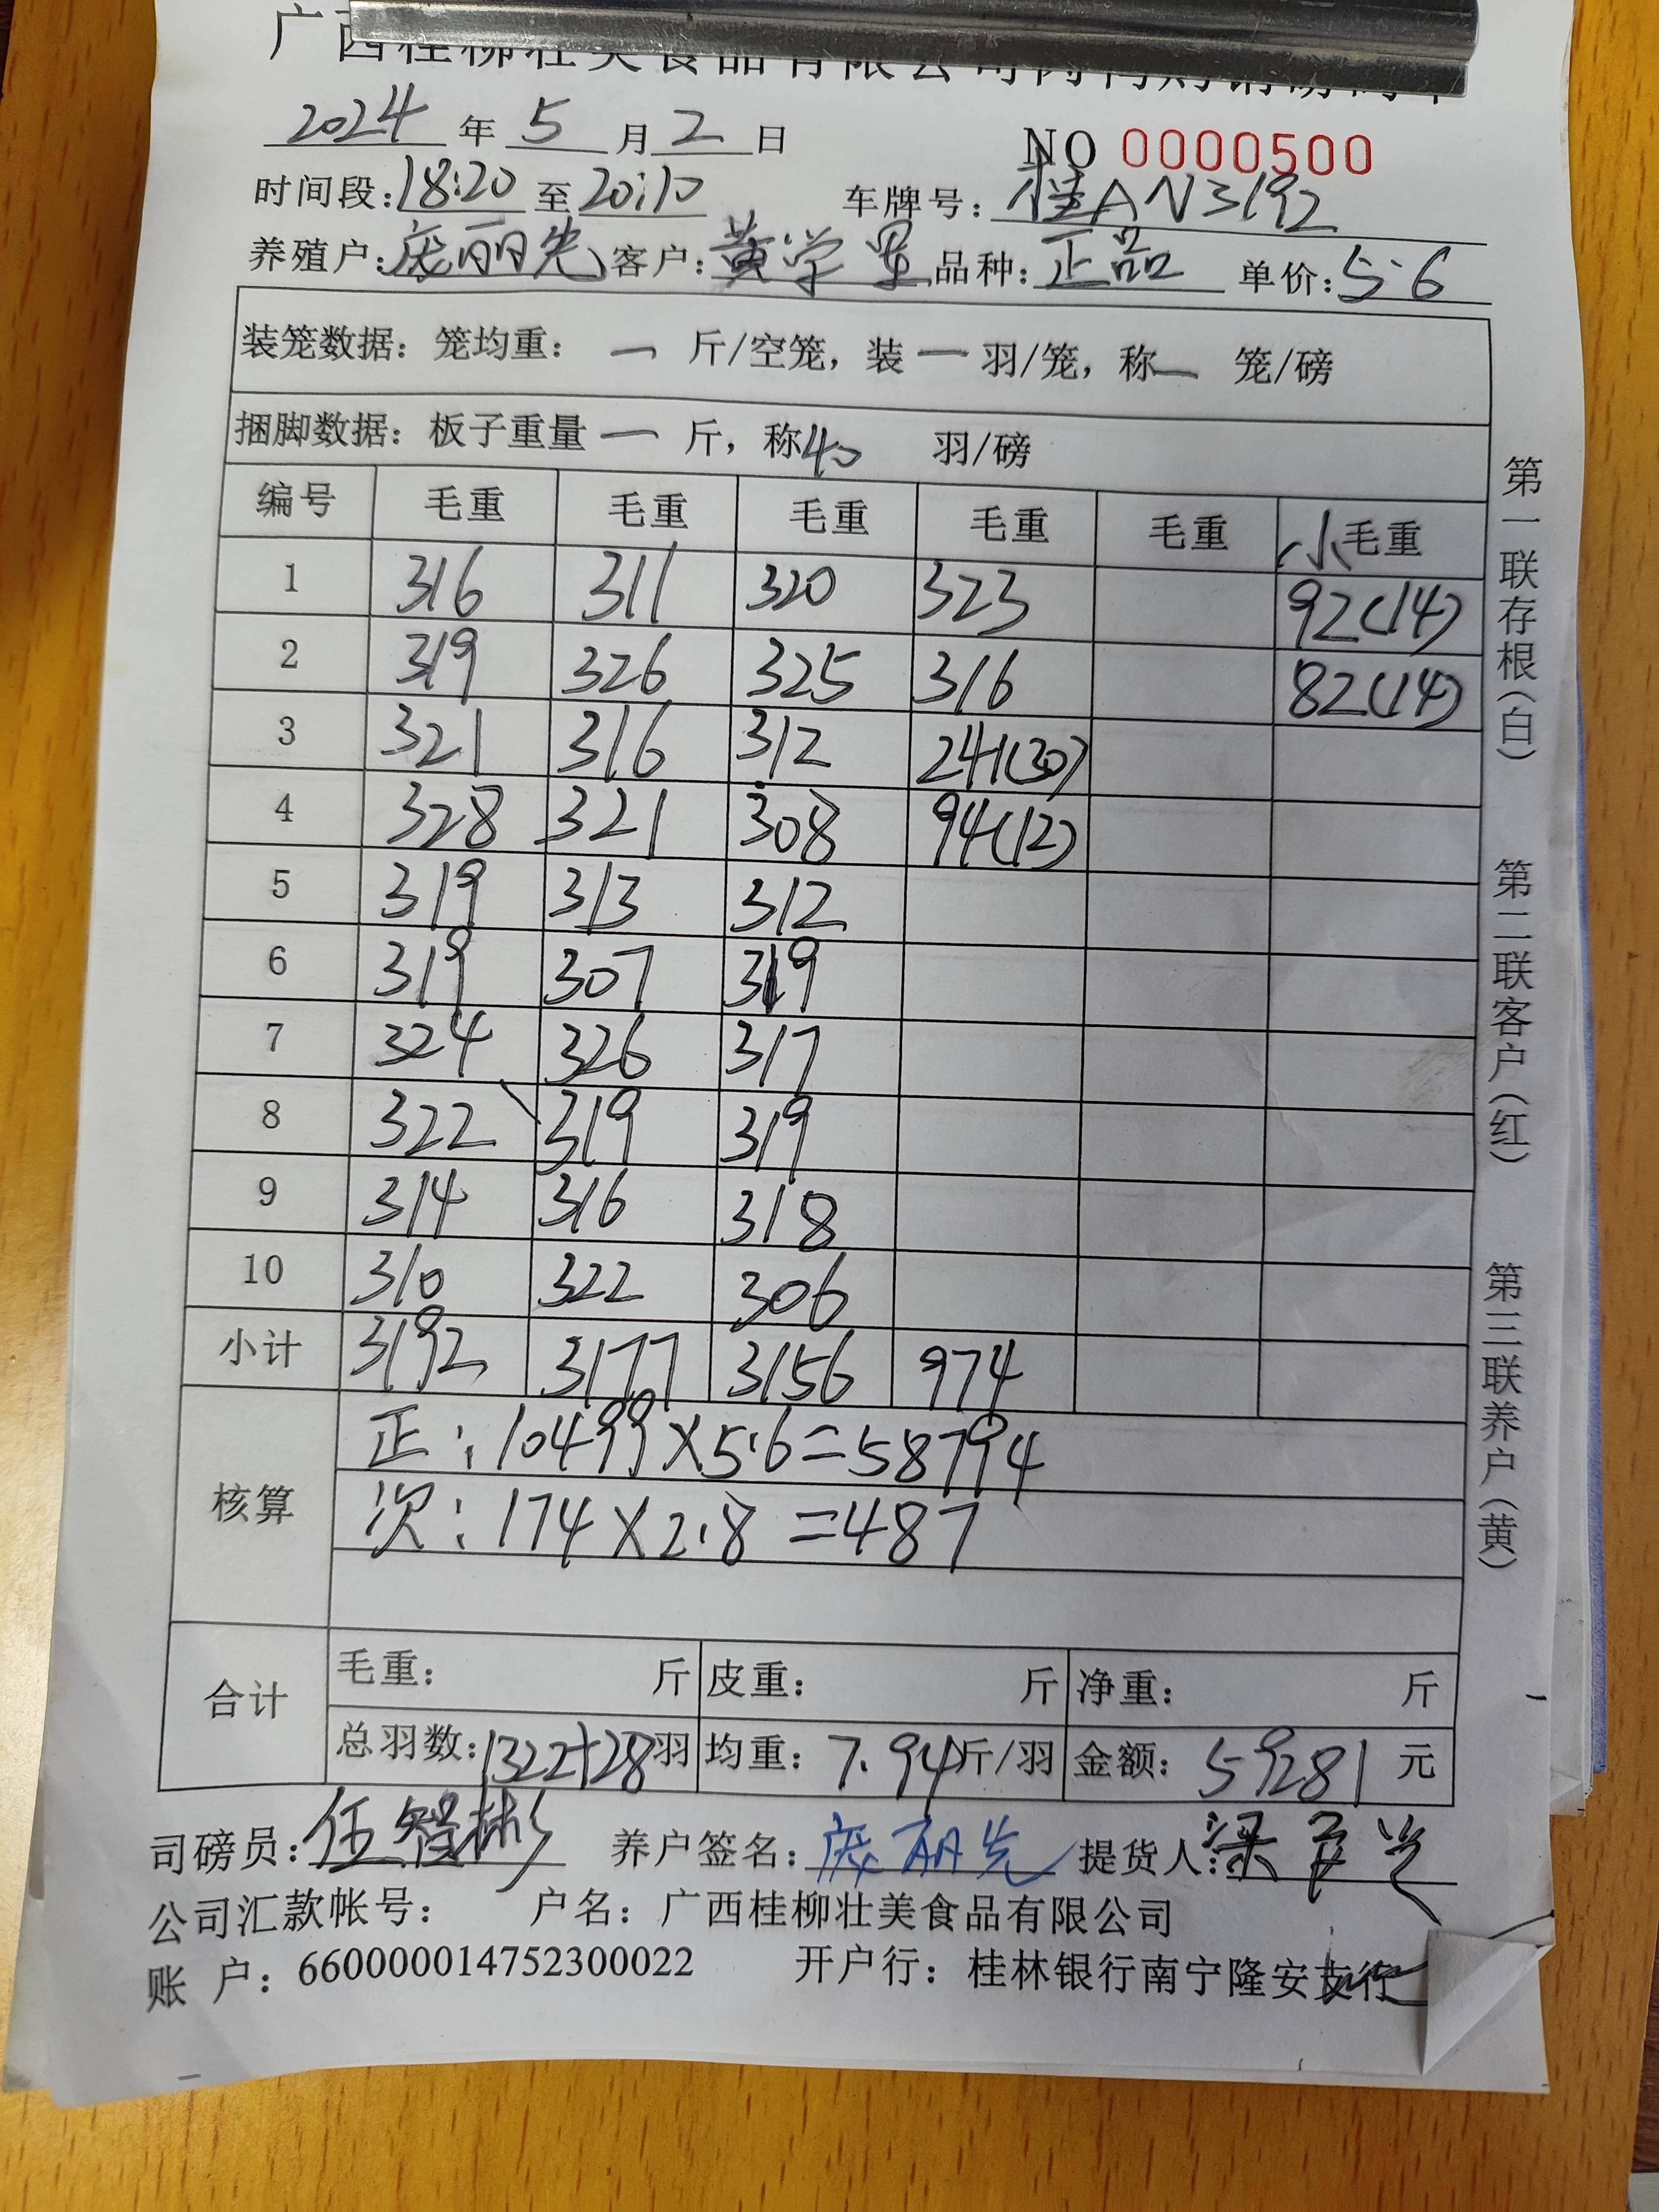 广西桂柳壮美食品有限公司肉鸭购销磅码单
2024年5月2日 NO 0000500
时间段:18:20至20:10 车牌号:桂AN3192
养殖户:庞丽先 客户:黄学 品种:正品 单价:5.6
装笼数据:笼均重: 一 斤/空笼,装一羽/笼,称一 笼/磅
捆脚数据:板子重量一 斤,称40 羽/磅
编号 毛重 毛重 毛重 毛重 毛重 小毛重
1 316 311 320 323 92(14)
2 319 326 325 316 82(14)
3 321 316 312 241(30)
4 328 321 308 94(12)
5 319 313 312
6 319 307 319
7 324 326 317
8 322 319 319
9 314 316 318
10 310 322 306
小计 3192 3177 3156 974
核算
正:10499×5.6=58794
次:174×2.8=487
合计
毛重: 斤 皮重: 斤 净重: 斤
总羽数:1322+28羽 均重:7.94斤/羽 金额:59281元
司磅员:任智彬 养户签名:庞丽先 提货人:梁
公司汇款帐号: 户名:广西桂柳壮美食品有限公司
账 户:660000014752300022 开户行:桂林银行南宁隆安支行
第一联存根(白)
第二联客户(红)
第三联养户(黄)